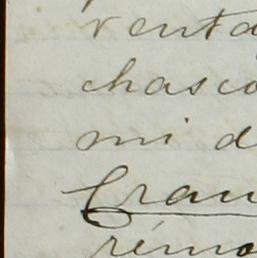 venta
chasco
mi d
Cran
rémo